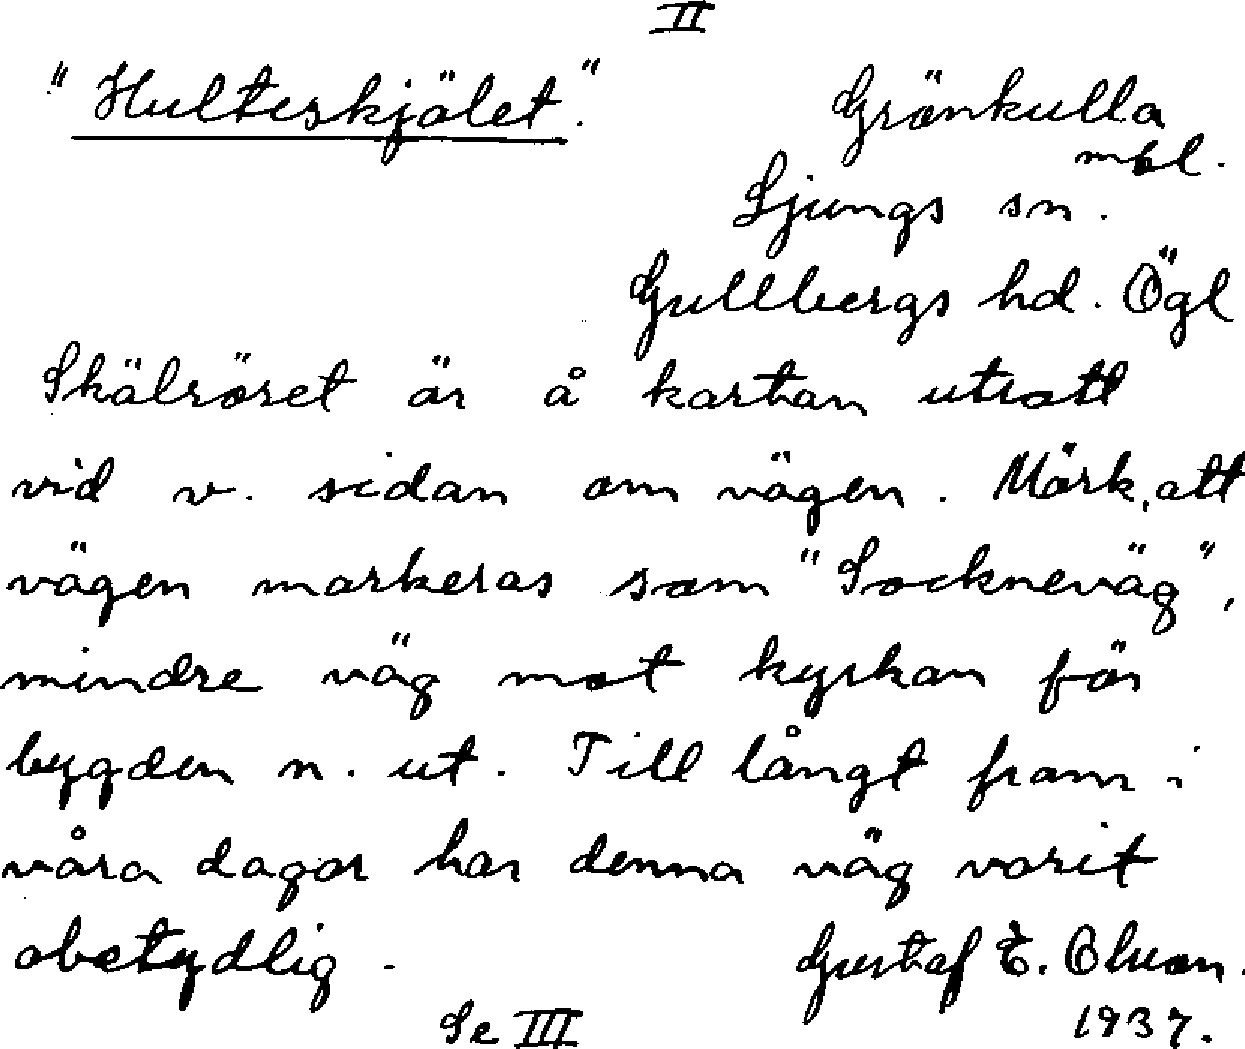 II
"Hulteskjälet."
Grönkulla
mbl.
Ljungs sn.
Gullbergs hd. Ögl
Skälröret är å kartan utsatt
vid v. sidan om vägen. Märk, att
vägen markeras som "Sockneväg",
mindre väg mot kyrkan för
bygden n. ut. Till långt fram i
våra dagar har denna väg varit
obetydlig.
Gustaf E. Olsson.
1937.
Se III